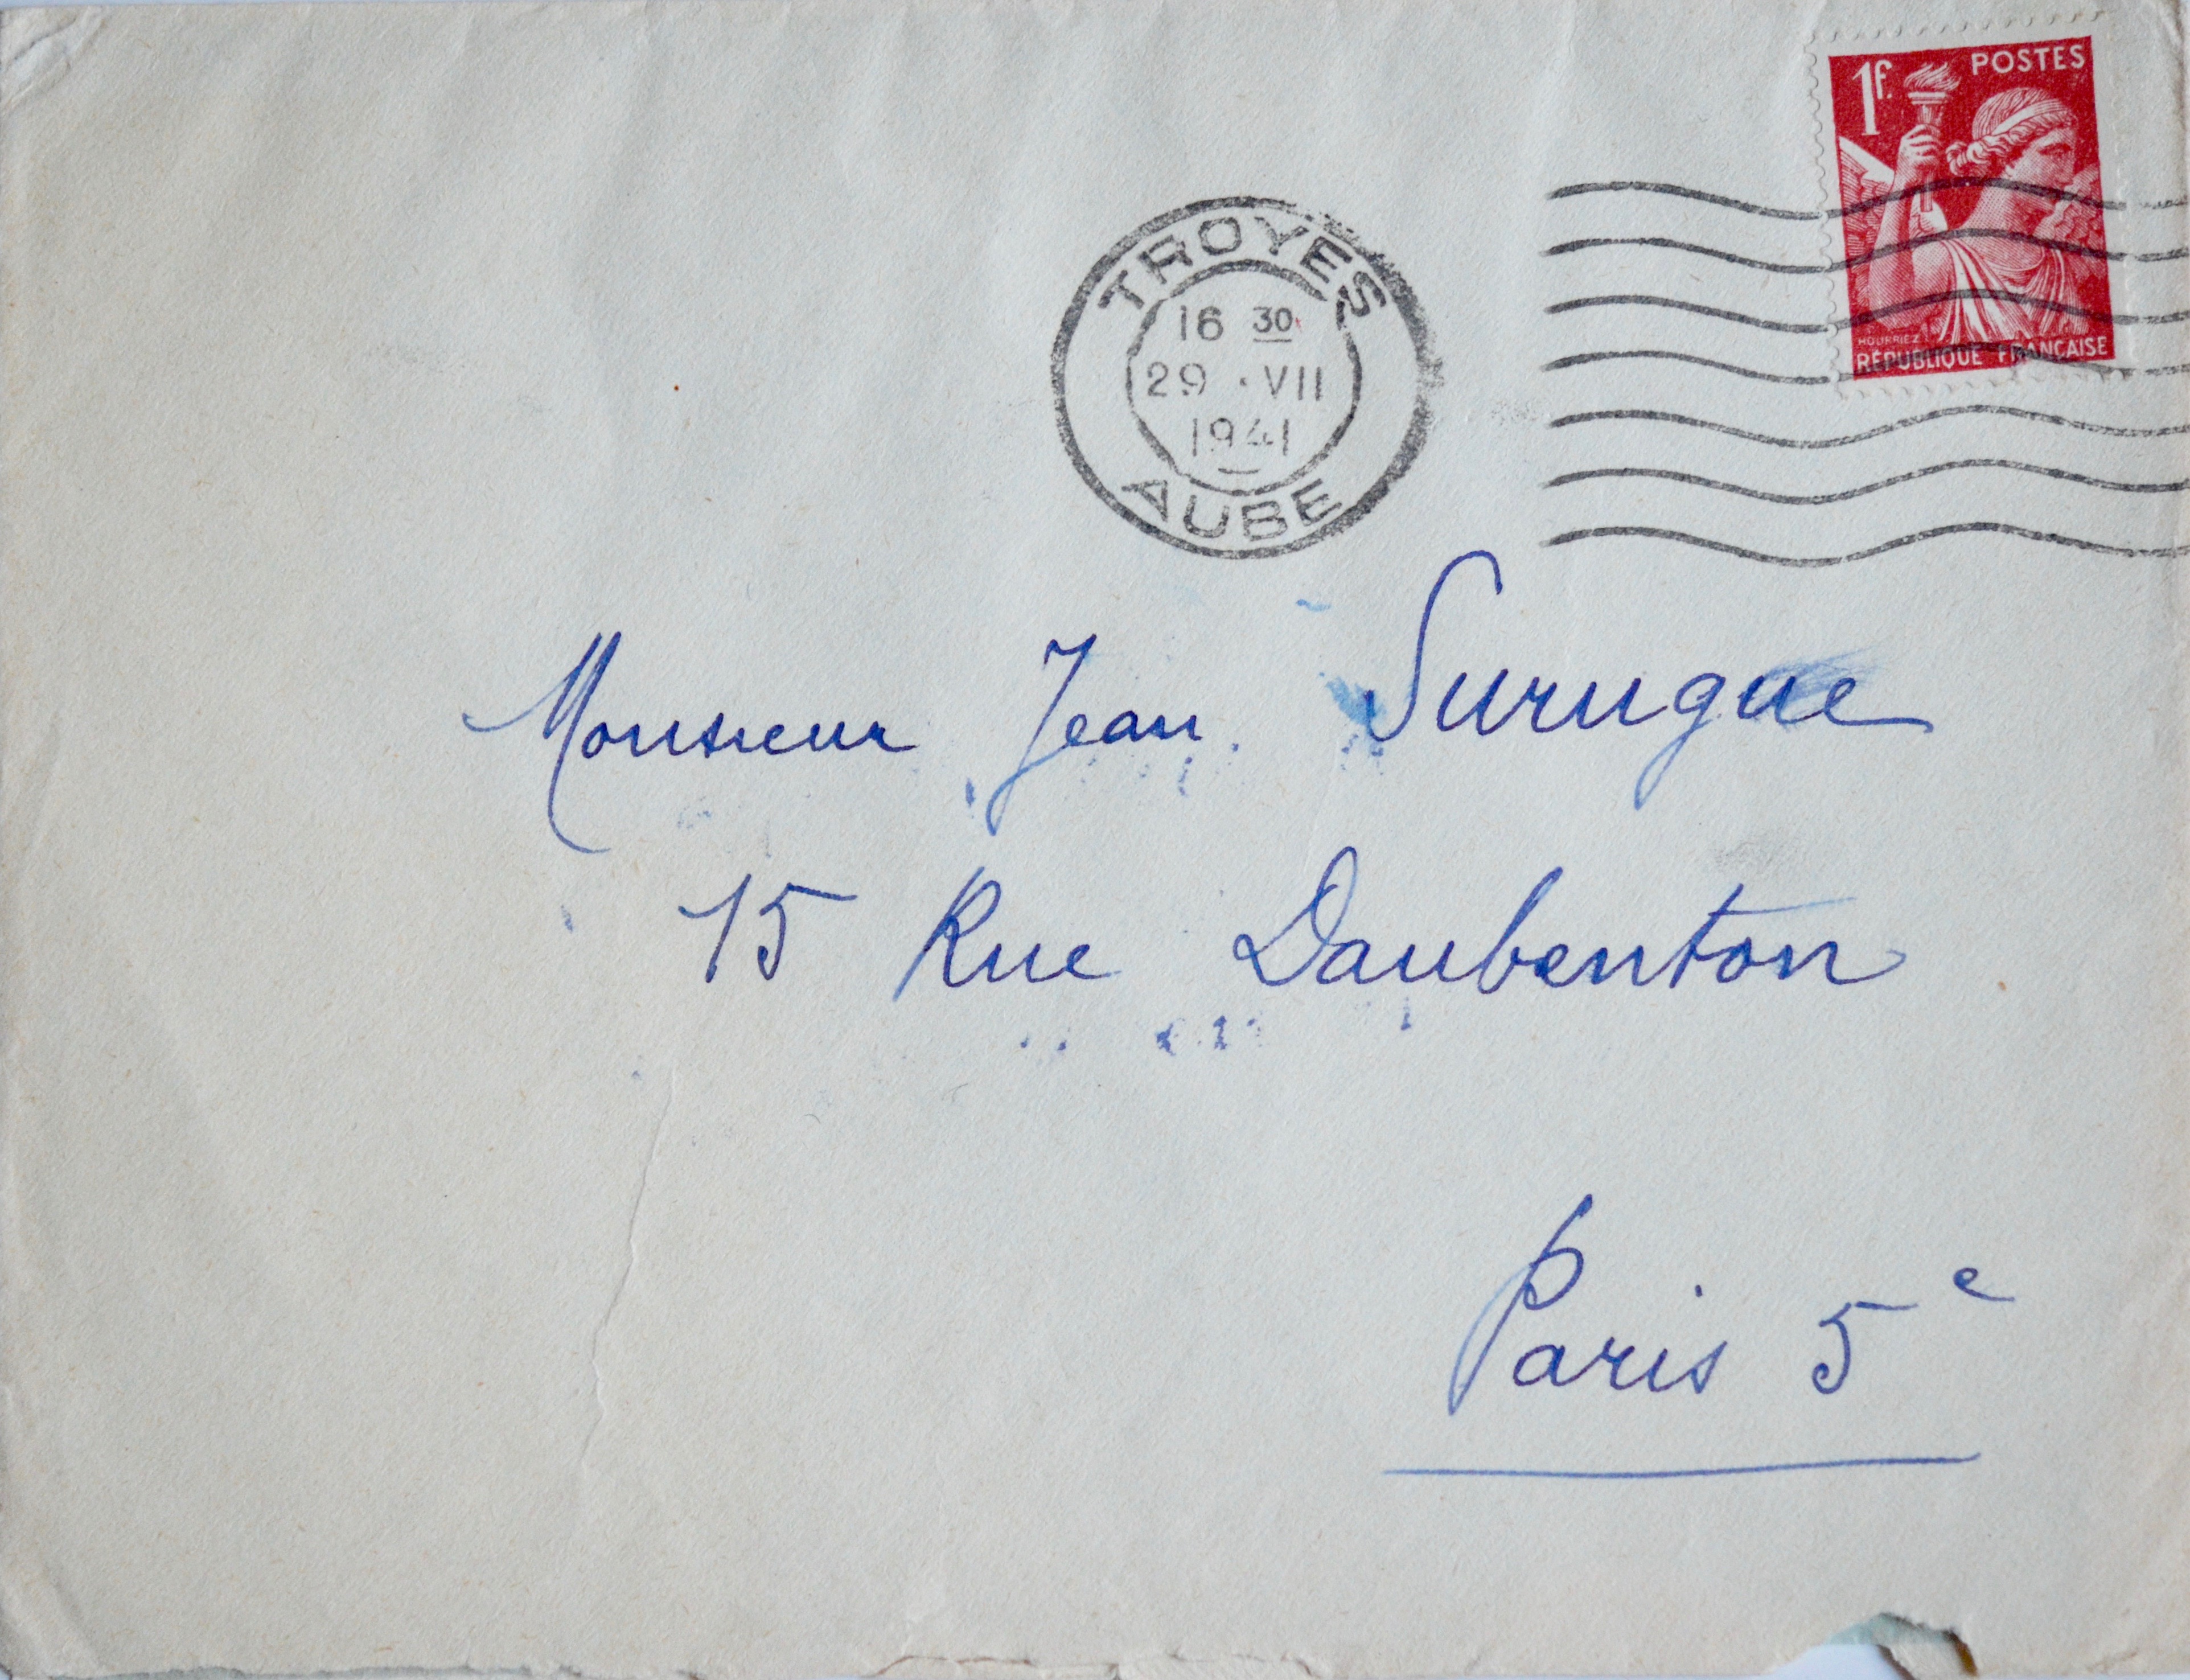 1f. POSTES
HOURRIEZ
RÉPUBLIQUE FRANÇAISE
TROYES
16 30
29 • VII
1941
AUBE
Monsieur Jean Surugue
15 Rue Daubenton
Paris 5e